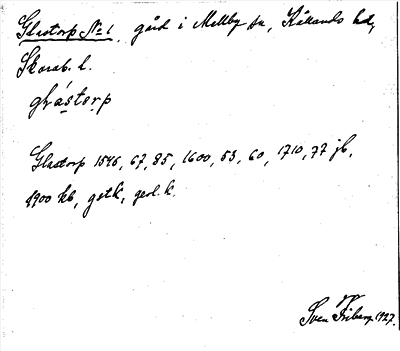 Glastorp No 1, gård i Mellby sn, Kållands hd,
Skarab. l.
glástorp
Glastorp 1546, 67, 85, 1600, 53, 60, 1710, 77 jb,
1900 kb, gstk, geol. k.
Sven Friberg 1927.